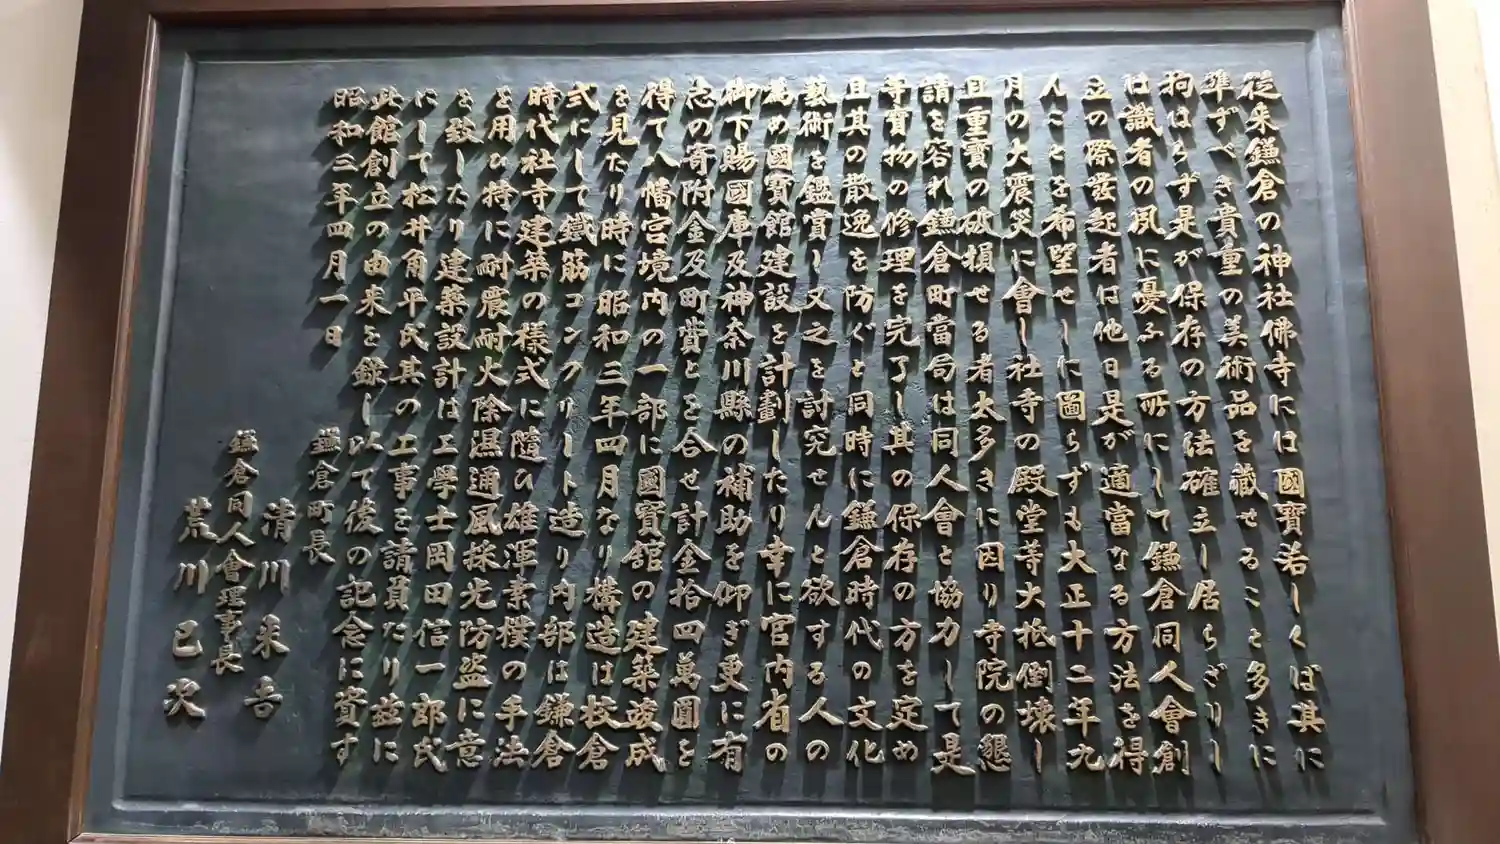 従来鎌倉の神社佛寺には國寶若しくば其に
準ずべき貴重の美術品を藏せること多きに
拘はらず是が保存の方法確立し居らざりし
は識者の夙に憂ふる所にして鎌倉同人會創
立の際發起者は他日是が適當なる方法を得
んことを希望せしに圖らずも大正十二年九
月の大震災に會し社寺の殿堂等大抵倒壊し
且重寶の破損せる者太多きに因り寺院の懇
請を容れ鎌倉町當局は同人會と協力して是
等寶物の修理を完了し其の保存の方を定め
且其の散逸を防ぐと同時に鎌倉時代の文化
藝術を鑑賞し又之を討究せんと欲する人の
為め國寶館建設を計劃したり幸に宮内省の
御下賜國庫及神奈川縣の補助を仰ぎ更に有
志の寄附金及町費とを合せ計金拾四萬圓を
得て八幡宮境内の一部に國寶館の建築竣成
を見たり時に昭和三年四月なり構造は校倉
式にして鐵筋コンクリート造り内部は鎌倉
時代社寺建築の様式に隨ひ雄渾素樸の手法
を用ひ特に耐震耐火除濕通風採光防盗に意
を致したり建築設計は工學士岡田信一郎氏
にして松井角平氏其の工事を請負たり茲に
此館創立の由来を錄し以て後の記念に資す
昭和三年四月一日
鎌倉町長
清川来吉
鎌倉同人會理事長
荒川已次